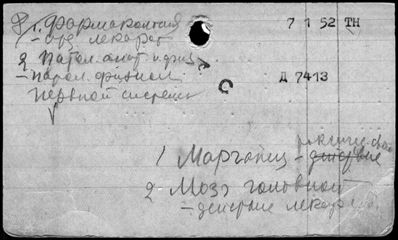 1. Фармакология 7 1 52 ТН
– орг лекарст
2 Патол. анат. и физ.
– патол. физиол Д 7413
нервной системы
1 Марганец – действие
2 Мозг головной
– действие лекарств